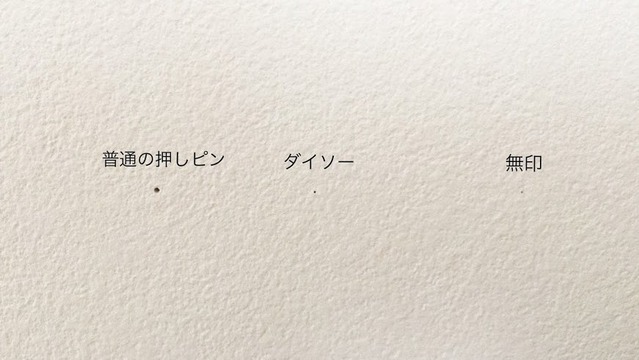 普通の押しピン
ダイソー
無印